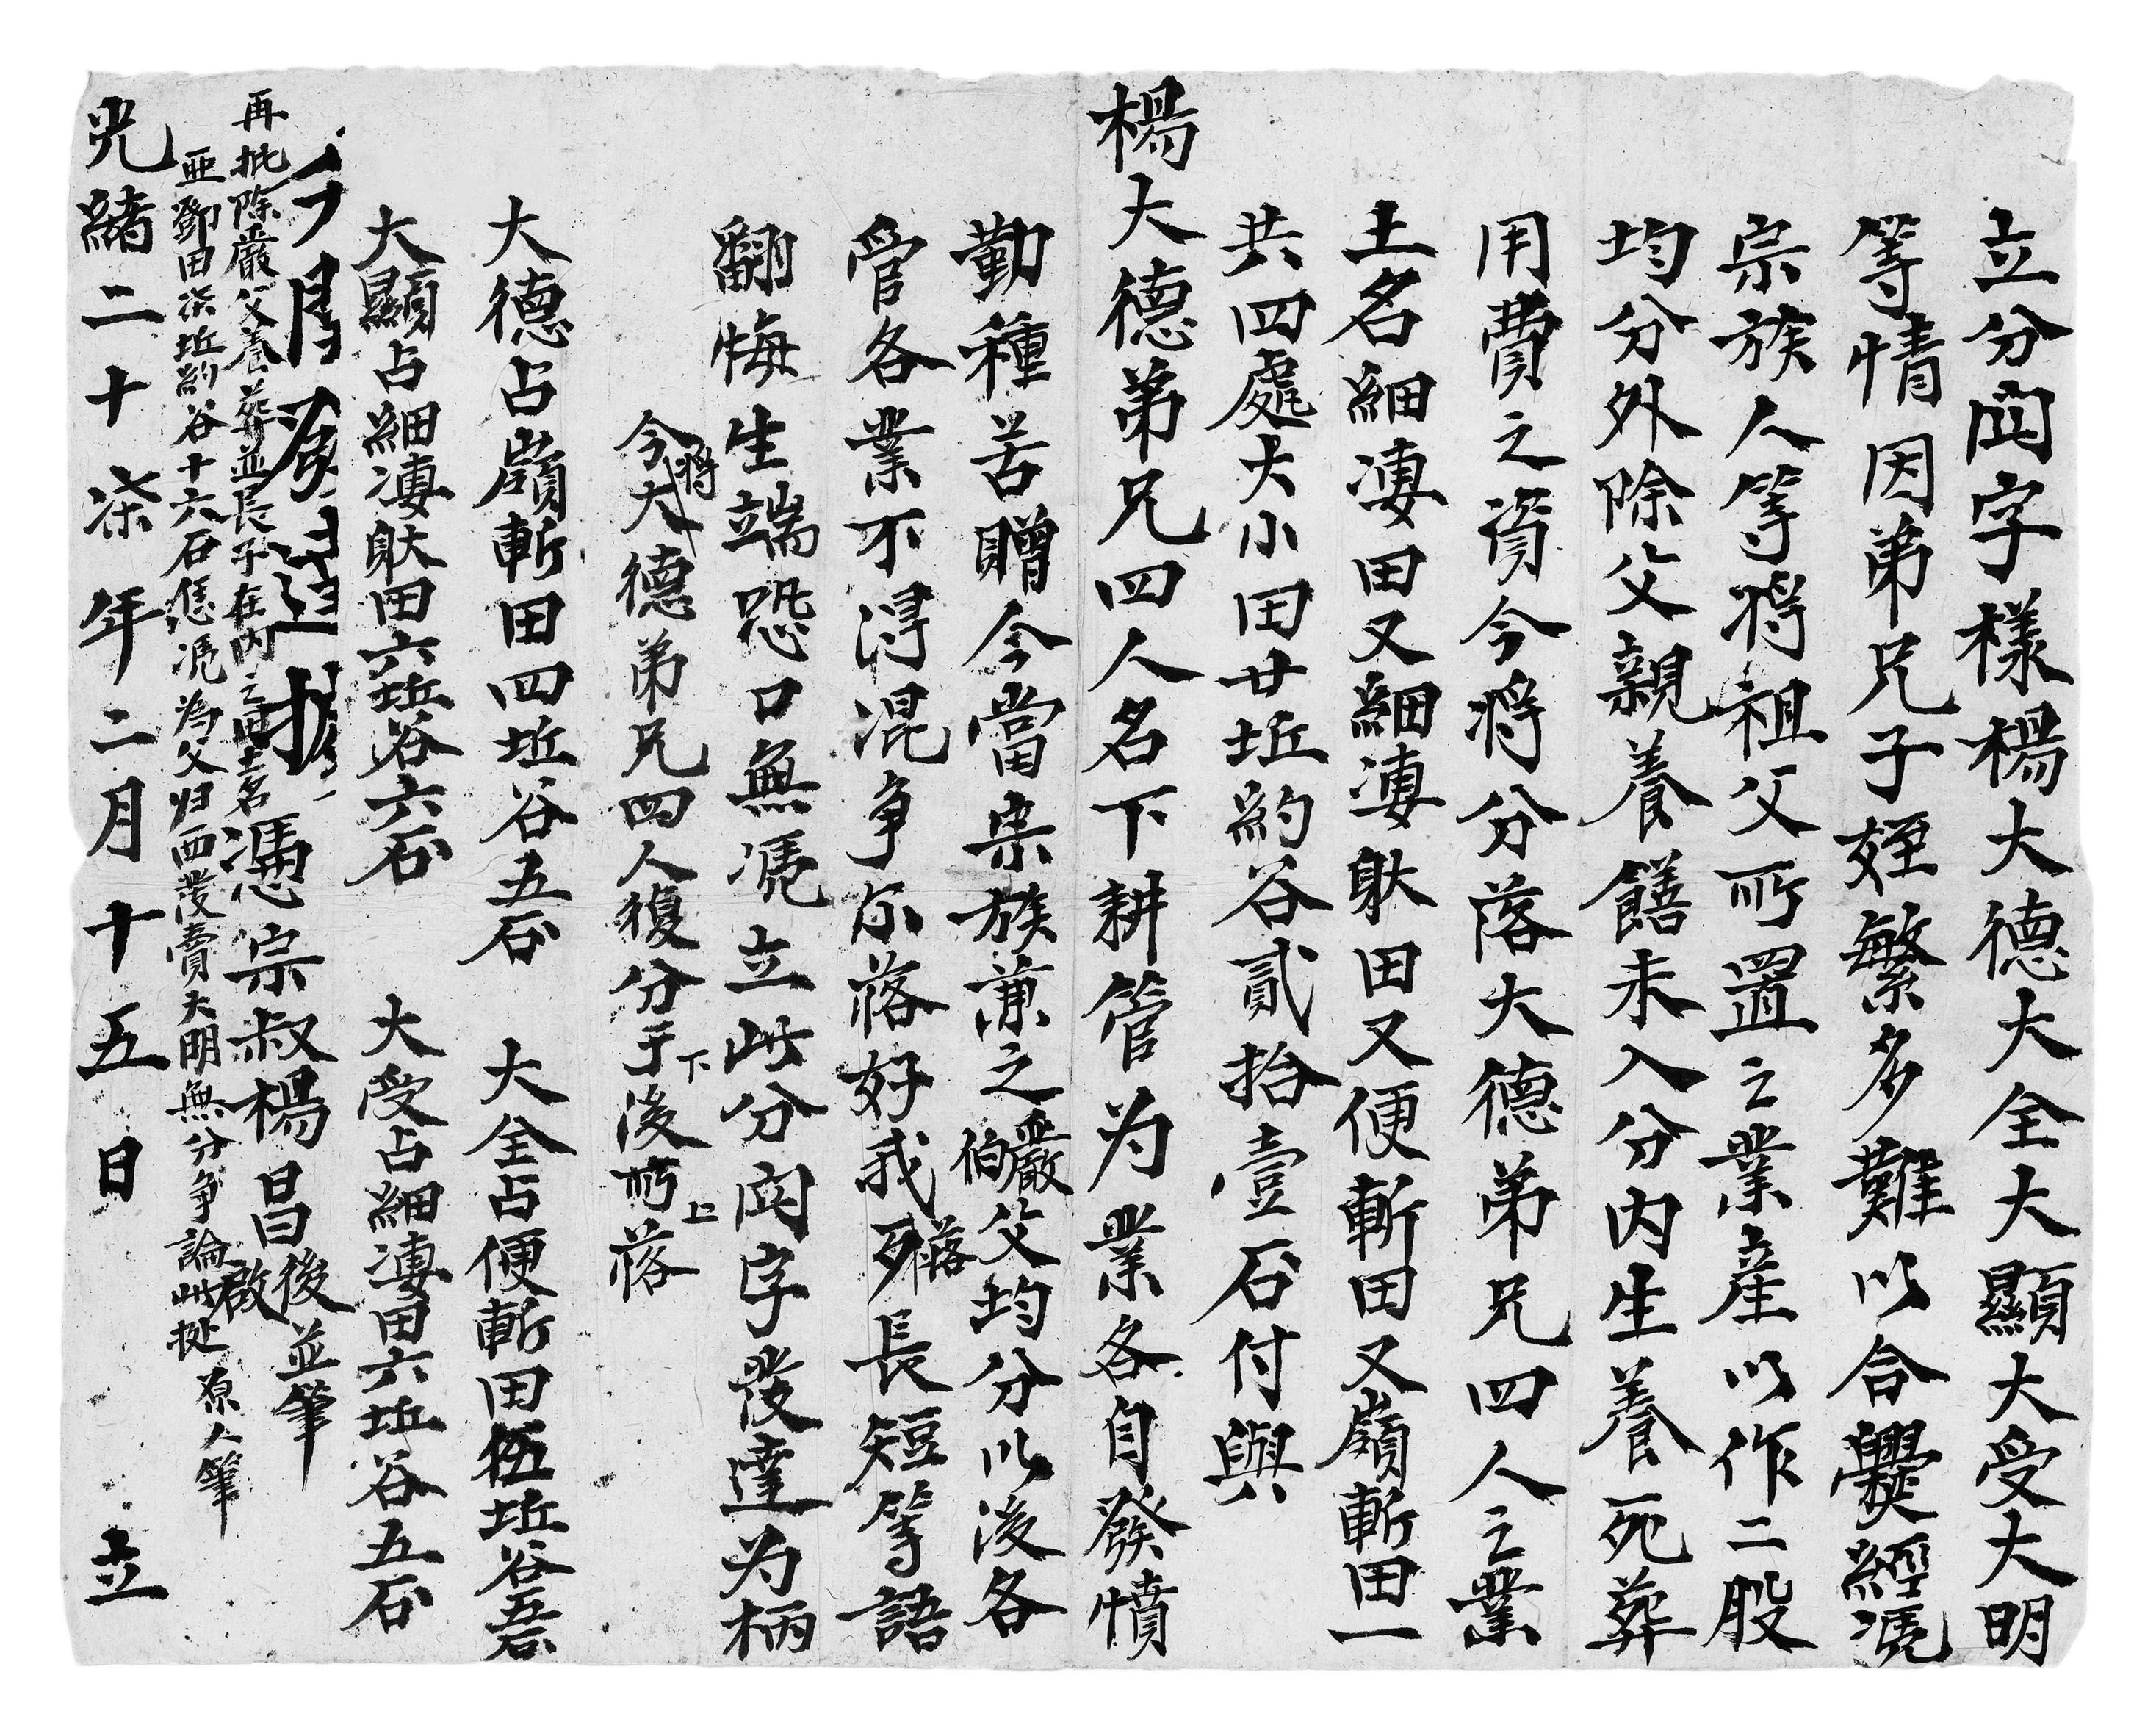 立分関字樣楊大德大全大顯大受大明
等情因弟兄子姪繁多難以合爨經凴
宗族人等将祖父所置之業産以作二股
均分外除父親養饍未入分内生養死葬
用費之資今将分落大德弟兄四人之業
土名細凄田又細凄䀡田又便斬田又嶺斬田一
共四處大小田廿坵約谷貳拾壹石付與
楊大德弟兄四人名下耕管为業各自發憤
勤種苦贈今當宗族兼之嚴伯父均分以後各
管各業不淂混争尔落好我落歹長短等語
翻悔生端恐口無凴立此分関字發達为柄
今将大德弟兄四人復分于後所落
下上
大德占嶺斬田四坵谷五石 大全占便斬田伍坵谷五石
大顯占細凄䀡田六坵谷六石 大受占細凄田六坵谷五石
凴宗叔楊昌後啟並筆
再批除嚴父養葬並長子在内之田土名
亜鄧田柒坵約谷十六石恁凴為父归西發賣大明無分争論此批 原人筆
光緒二十柒年二月十五日 立